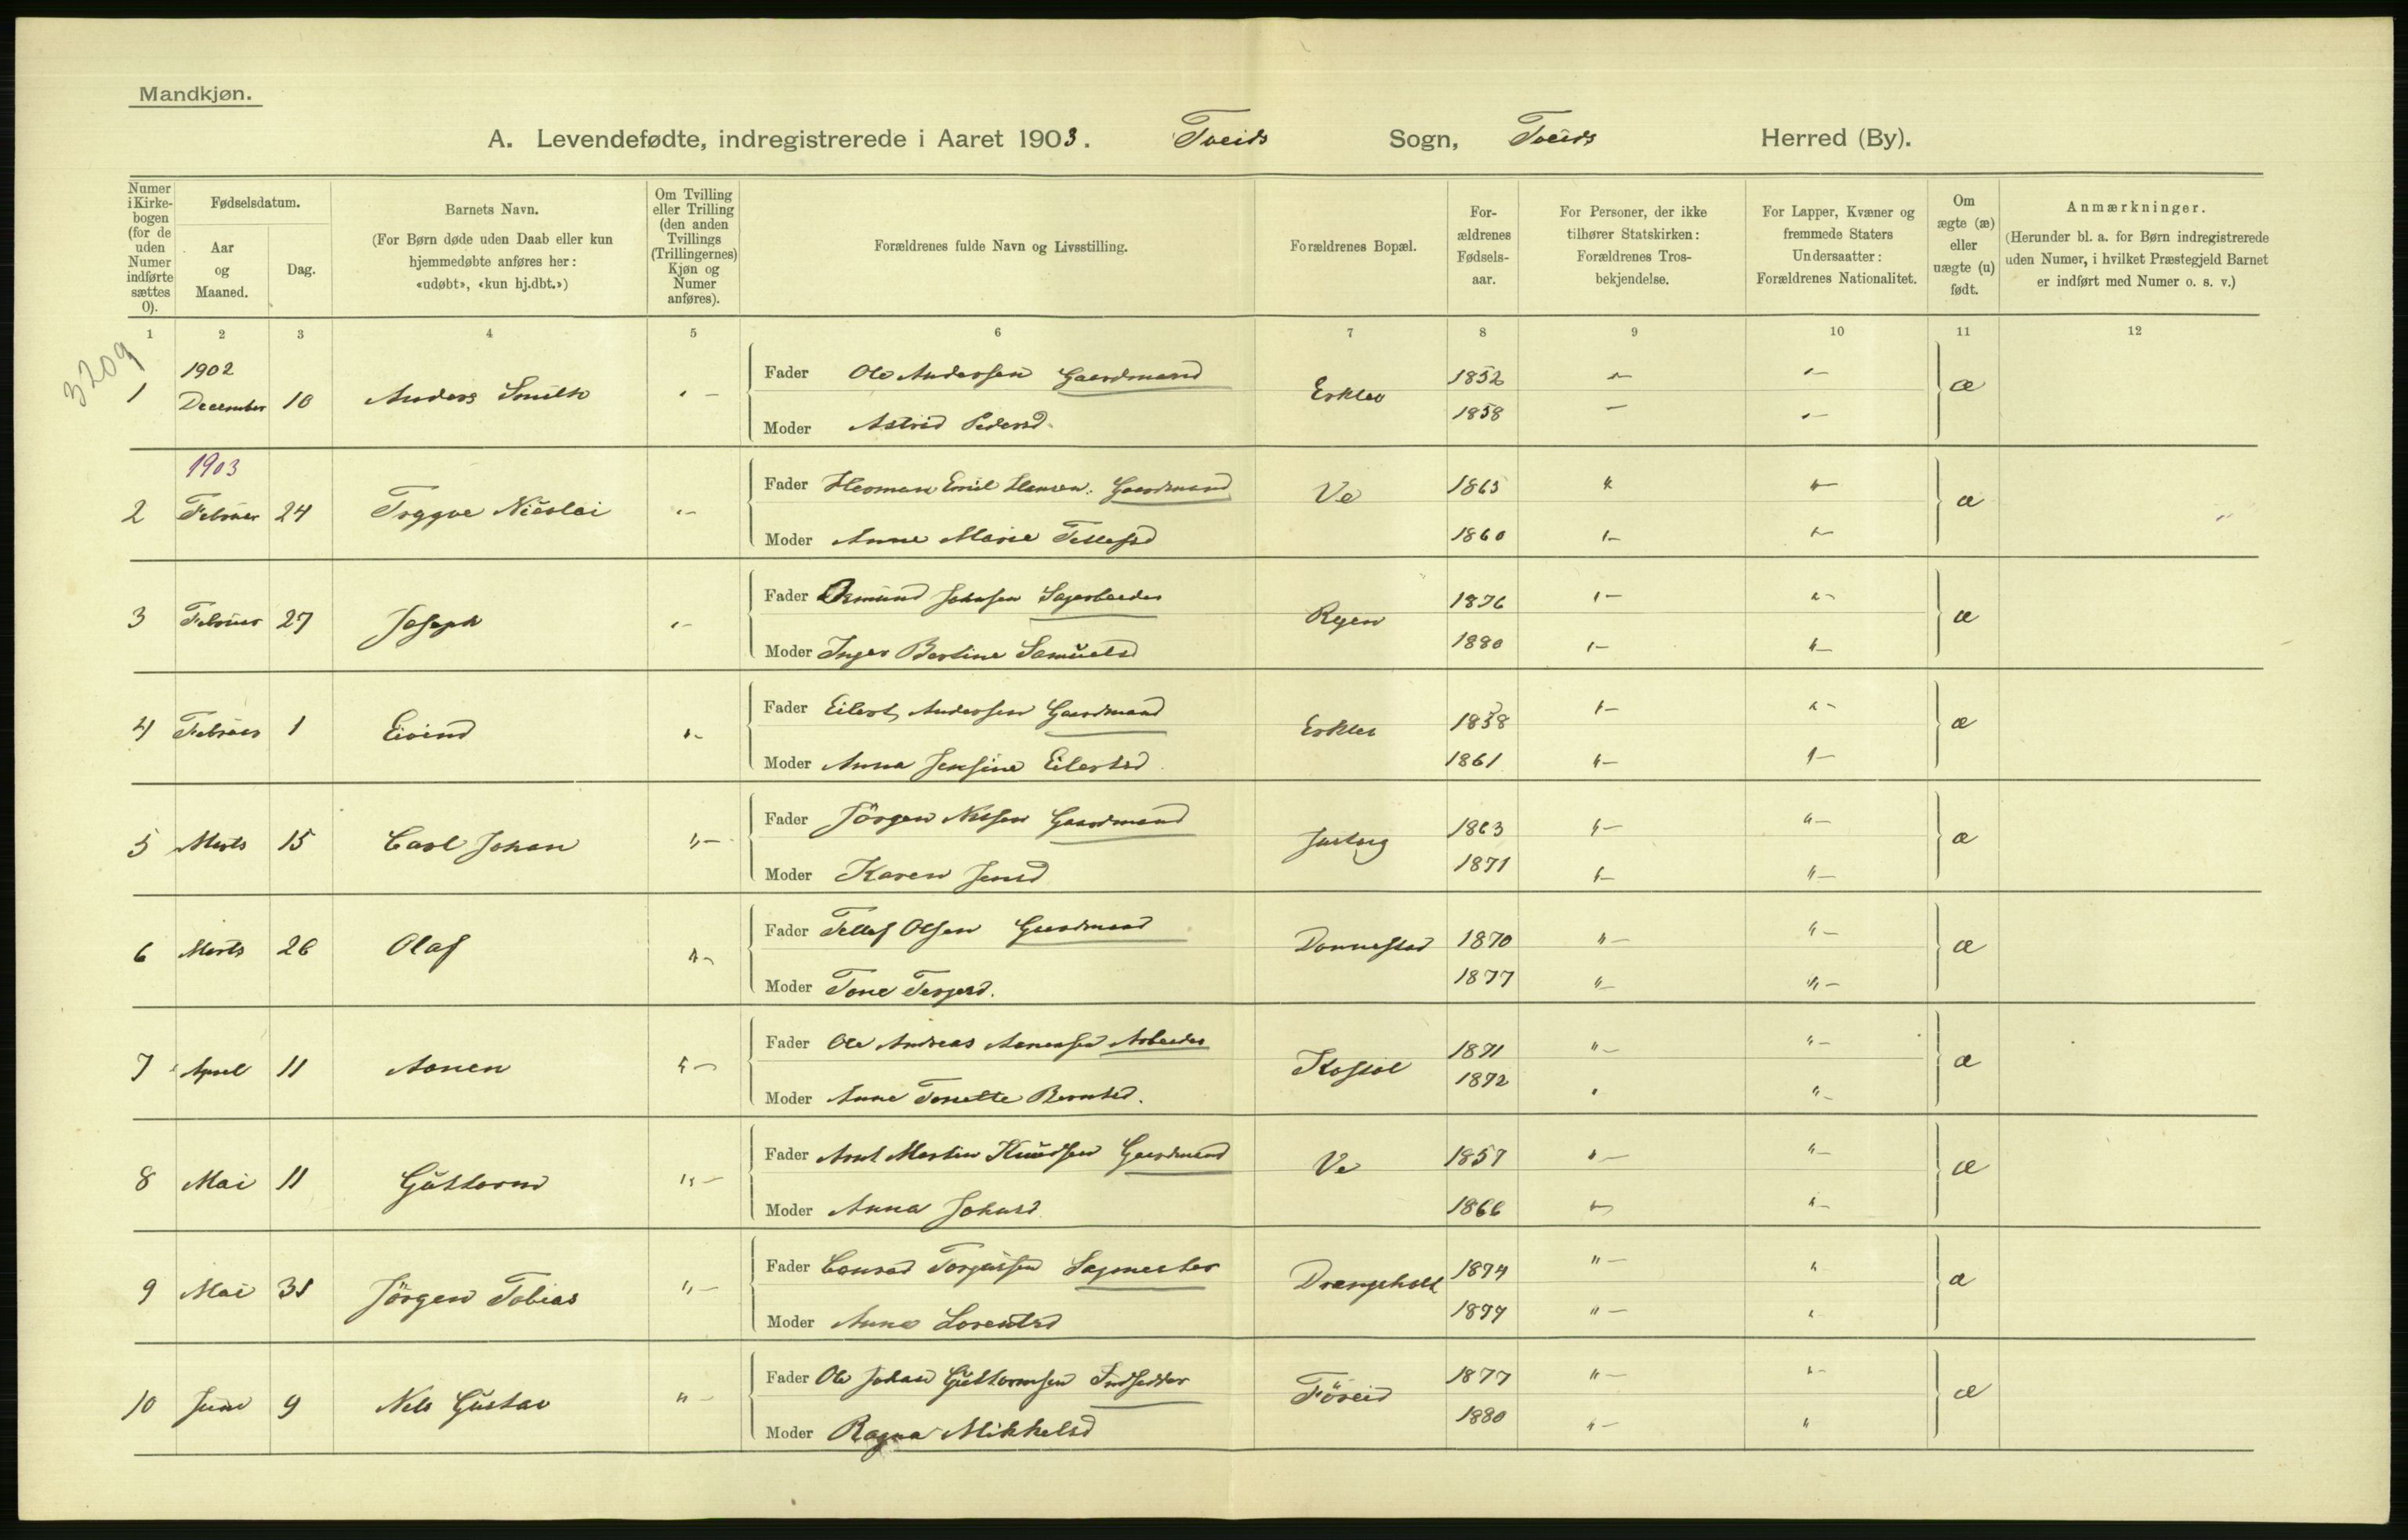 Mandkjøn.
A. Levendefødte, indregistrerede i Aaret 1903. Tveids Sogn, Tveids Herred (By).
Numer i Kirkebogen (for de uden Numer indførte sættes 0).
Fødselsdatum.
Aar og Maaned.
Dag.
Barnets Navn.
(For Børn døde uden Daab eller kun hjemmedøbte anføres her: «udøbt», «kun hj.dbt.»)
Om Tvilling eller Trilling (den anden Tvillings (Trillingernes) Kjøn og Numer anføres).
Forældrenes fulde Navn og Livsstilling.
Forældrenes Bopæl.
Forældrenes Fødselsaar.
For Personer, der ikke tilhører Statskirken: Forældrenes Trosbekjendelse.
For Lapper, Kvæner og fremmede Staters Undersaatter: Forældrenes Nationalitet.
Om ægte (æ) eller uægte (u) født.
Anmærkninger.
(Herunder bl. a. for Børn indregistrerede uden Numer, i hvilket Præstegjeld Barnet er indført med Numer o. s. v.)
1 2 3 4 5 6 7 8 9 10 11 12
3209
1 1902 December 10 Anders Smith " - Fader Ole Andersen Gaardmand 1852 " - " - æ
Moder Astrid Pedersd. 1858 " - " -
2 1903 Februar 24 Trygve Nicolai " - Fader Herman Emil Hansen. Gaardmand Ve 1865 " " - æ
Moder Anne Marie Tellefsd 1860 " - " -
3 Februar 27 Joseph " - Fader Osmund Johnsen Sagarbeider Ryen 1876 " - " - æ
Moder Inger Bertine Samuelsd 1880 " - " -
4 Februar 1 Eivind " - Fader Eilert Andersen Gaardmand 1858 " - " - æ
Moder Anna Jensine Eilertsd 1861 " - " -
5 Marts 15 Carl Johan " - Fader Jörgen Nilsen Gaardmand Justvig 1863 " - " - æ
Moder Karen Jensd 1871 " - " -
6 Marts 26 Olaf " - Fader Tellef Olsen Gaardmand Donnestad 1870 " - " - æ
Moder Tone Terjesd. 1877 " - " -
7 April 11 Aanen " - Fader Ole Andreas Aanensen Arbeider 1871 " - " - æ
Moder Anne Tonette Berntsd. 1872 " " -
8 Mai 11 Guttorm " - Fader Arnt Martin Knudsen Gaardmand Ve 1857 " - " - æ
Moder Anna Johnsd 1866 " - " -
9 Mai 31 Jörgen Tobias " - Fader Conrad Torjussen Sagmester Drangsholt 1874 " - " æ
Moder Anne Lorentsd 1877 " - "
10 Juni 9 Nils Gustav " - Fader Ole Johan Guttormsen Indsidder Föreid 1877 " - " - æ
Moder Ragna Mikkelsd 1880 " - "